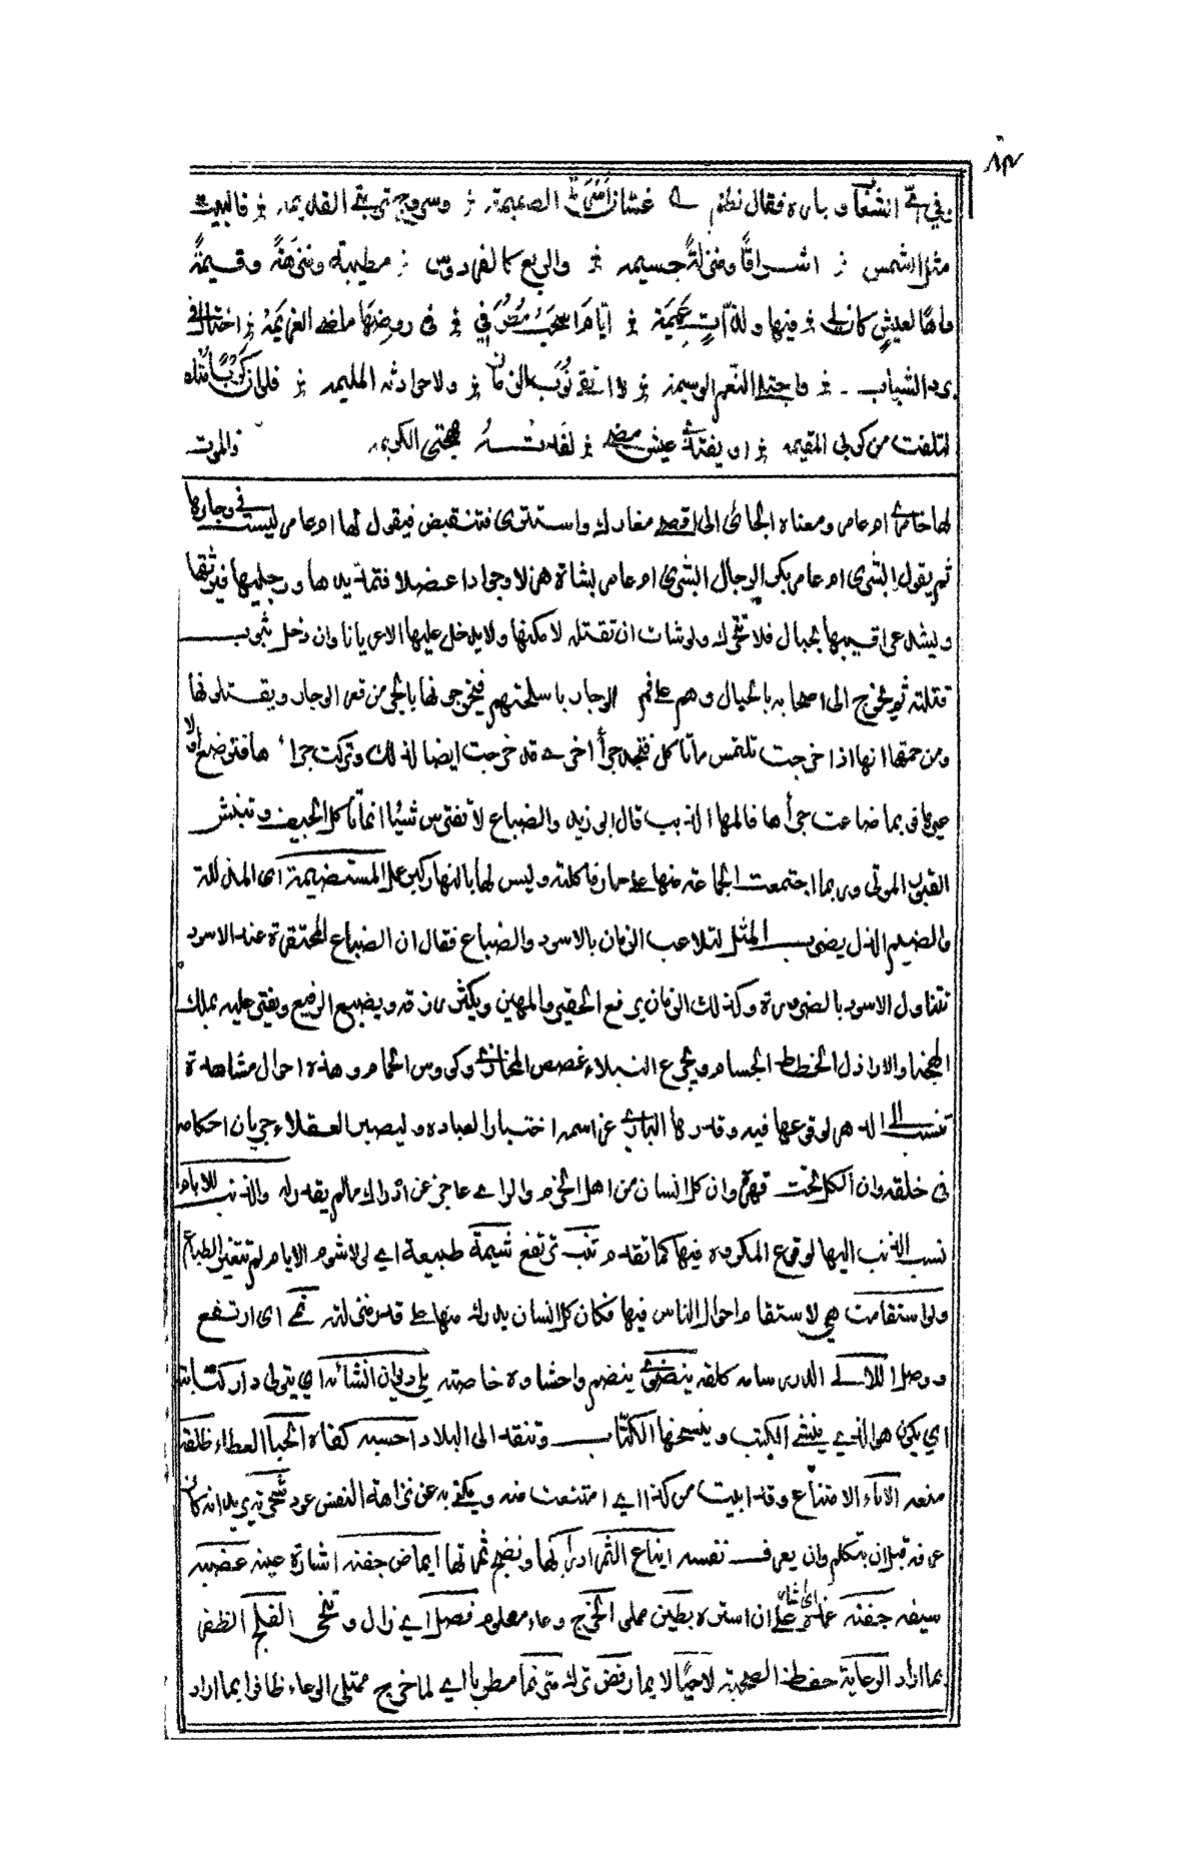 ٨٣
في انشغاوباره فقال نظم غسان أسرتى الصميمة وسروج تربتى القديمه فالبيت
مثل الشمس اشراقًا ومنزلةً جسيمه والربع كالفردوس مطيبة ومنزهةً وقيمةً
واهًا لعيشٍ كان لى فيها ولذّاتٍ عَمِيمَة ايّام اسحب مُطرفي فى روضها ماضى العزيمة اختال فى
برد الشباب واجتلى النّعم الوسيمة لا اتقى نُوَب الزمان ولا حوادثه المليمه فلو ان كربًا متلف
لتلفت من كربى المقيمه او يفتدى عيش مضى لفدته مهجتى الكريمه والموت
لها خامرى ام عامر ومعناه الجائى الى اقصى مغارك واستترى فتنقبض فيقول لها ام عامر ليست فى وجارها
ثم يقول ابشرى ام عامر بكمر الرجال ابشرى ام عامر بشاة هزلا وجراد عضلا فتمد يدها ورجليها فيوثقها
ويشد عراقيبها بحبال فلا تتحرك ولو شات ان تقتله لامكنها ولا يدخل عليها الا عريانا وان دخل بثوب
قتلته ثم يخرج الى اصحابه بالحبال وهم على فم الوجار باسلحتهم فيخرجونها بالجر من قعر الوجار ويقتلونها
ومن حمقها انها اذا خرجت تلتمس ما تاكل فتجد جرأ اخرى قد خرجت ايضا لذلك وتركت جراءها فترضع اولاد
غيرها فربما ضاعت جرأها فاكلها الذيب قال ابو زيد والضباع لا تفترس شيئا انما تاكل الجيف وتنبش
القبور الموتى وربما اجتمعت الجماعة منها على حمار فاكلته وليس لها بالنهار كبير عمل المستضيمة اى المذللة
والضيم الذل يضرب المثل لتلاعب الزمان بالاسود والضباع فقال ان الضباع المحتقرة عند الاسود
تتناول الاسود بالضرورة وكذلك الزمان يرفع الحقير والمهين ويكثر رزقه ويضيع الرفيع ويقتر عليه بملك
الهجناء والاراذل الخطط الجسام ويجرع النبلاء غصص المخازى وكووس الحمام وهذه احوال مشاهدة
تنسب الى الدهر لوقوعها فيه وقدرها البارى عز اسمه اختبارا لعباده وليصير العقلاء جريان احكامه
فى خلقه وان الكل تحت قهره وان كل انسان من اهل الحزم والراى عاجز عن ادراك ما لم يقدر له والذنب للايام
نسب الذنب اليها لوقوع المكروه فيها كما تقدم تنب ترتفع شيمة طبيعة اى لولا شوم الايام لم تتغير الطباع
ولو استقامت هى لاستقام احوال الناس فيها فكان كل انسان يدرك منها على قدر منزلته نمى اى ارتفع
ووصل اللالى الدرر سامه كلفه ينضوى ينضم واحشاوه خاصته يلى ديوان انشائه اى يتولى دار كتابته
اي يكون هو الذى ينشى الكتب وينسخها الكتّاب وتنفذ الى البلاد احسبه كفاه الحبا العطاء ظلفه
منعه الاباء الامتناع وقد ابيت من كذا اى امتنعت منه ويكنى به عن نزاهة النفس عود شجرته يريد انه كان
عرفه قبل ان يتكلم وان يعرف نفسه ايناع الثمر ادراكها ونضج ثمرتها ايماض جفنه اشارة عينه عضبه
سيفه جفنه غمده على ان استره بطين مملى الخرج وعاء معلوم فصل اى زال وتنحى الفلج الظفر
بما اراد الرعاية حفظ الصحبة لاحيًا لايما رفض ترك مترنما مطربا اى لما خرج ممتلى الوعاء ظافرا بما اراد